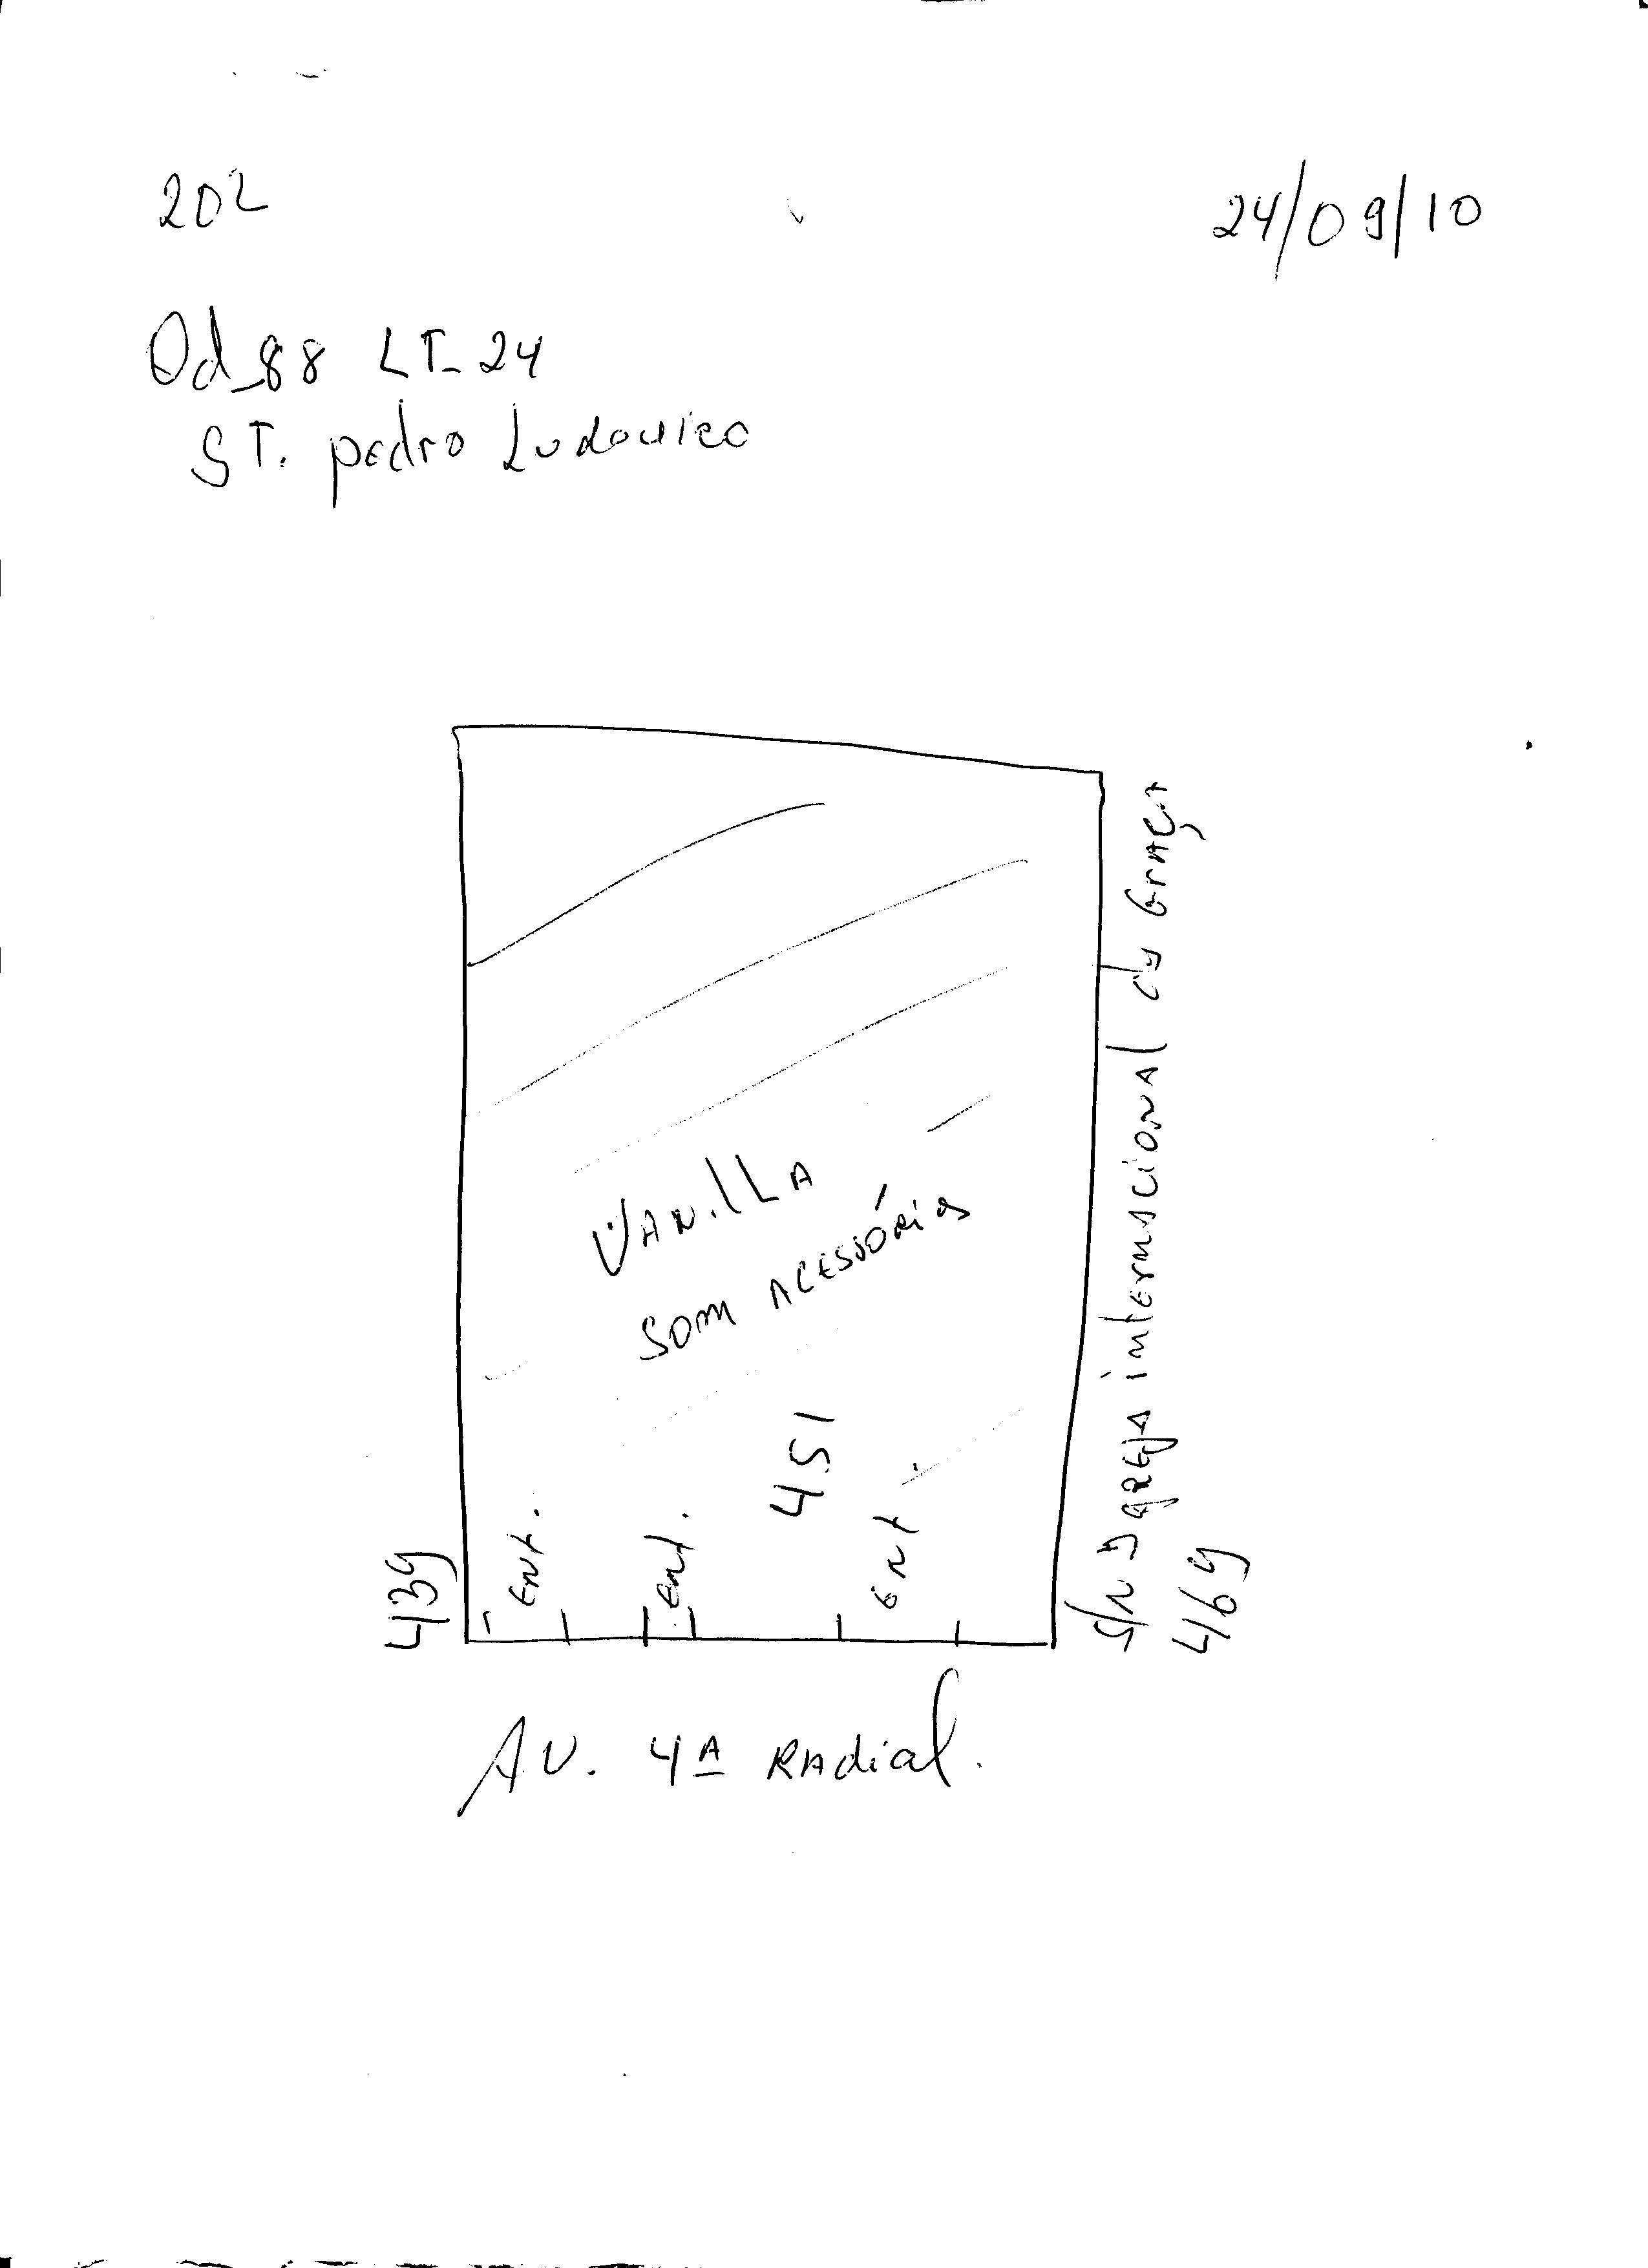 202
24/09/10
Qd_88 LT_24
ST. pedro Ludovico
VANILLA
SOM ACESSÓRIOS
451
Ent.
ent.
ent.
439
S/N Igreja internacional da GrAçA
469
AV. 4ª RAdial.